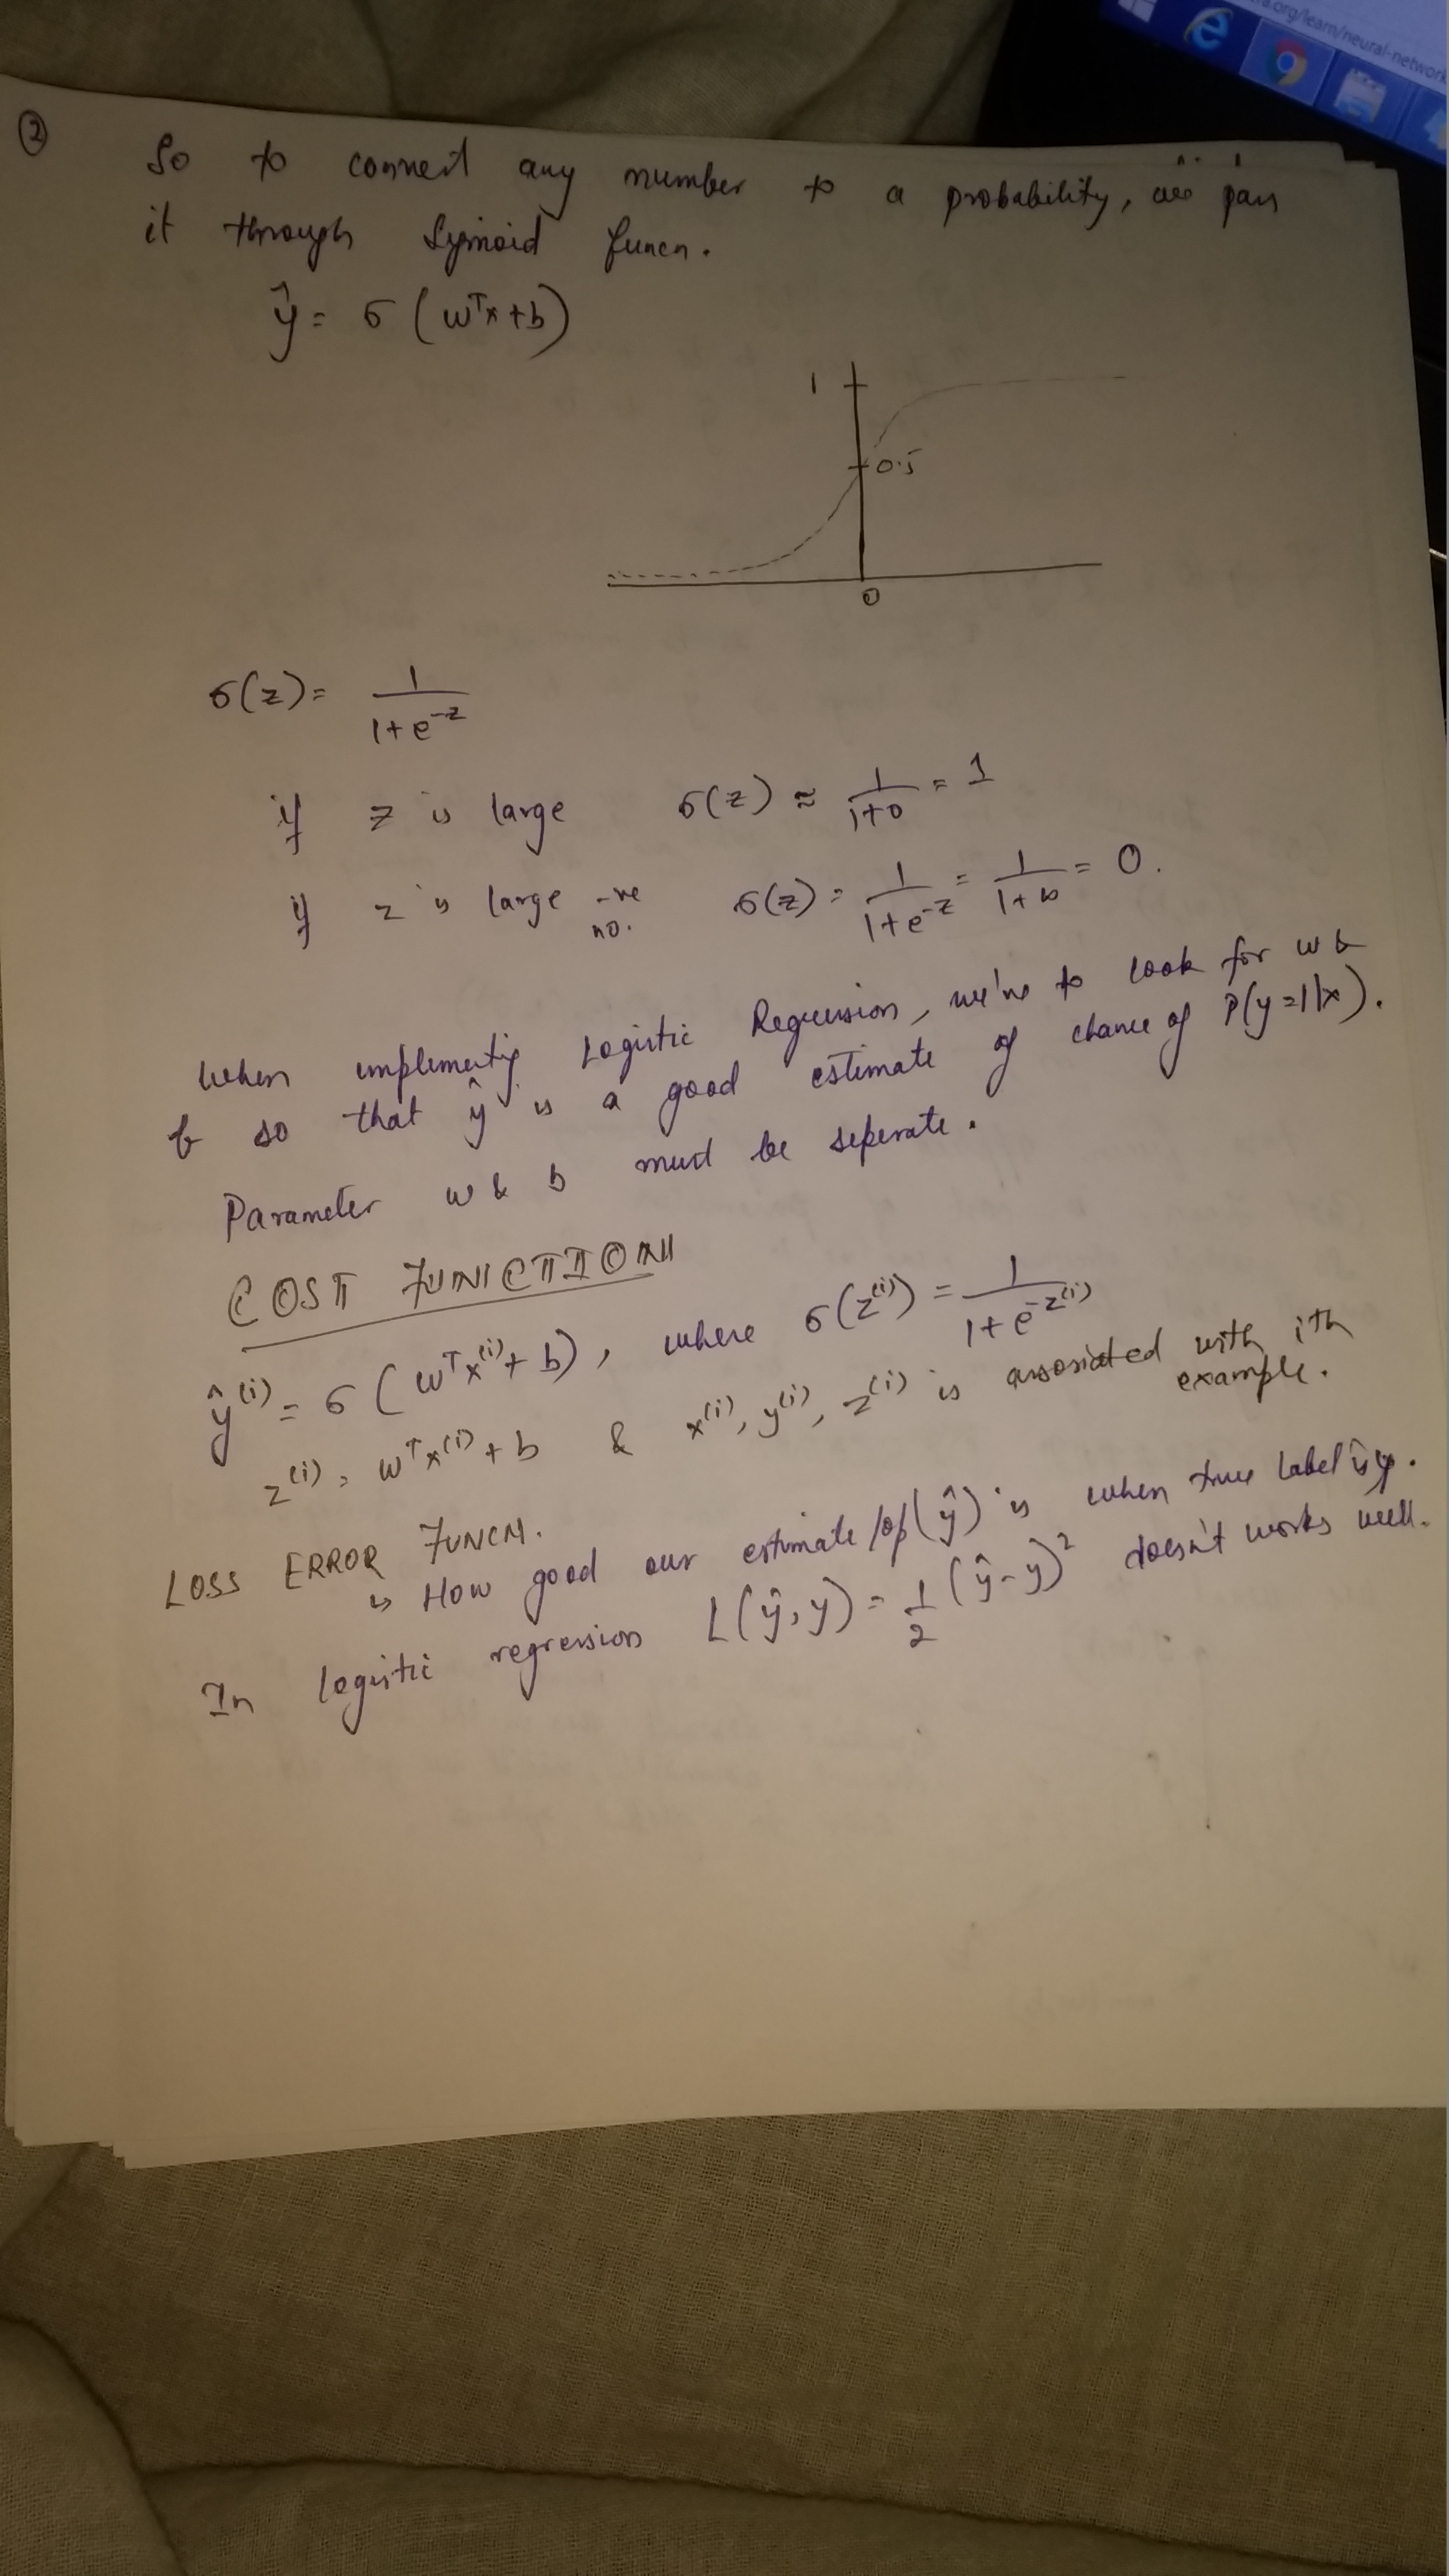 ra.org/learn/neural-network
②
So to convert any number to a probability, we pass
it through Sigmoid funcn.
ŷ = σ (wᵀx+b)
1
0.5
0
σ(z) = 1/(1+e^-z)
if z is large σ(z) ≈ 1/(1+0) = 1
if z is large -ve no. σ(z) = 1/(1+e^-z) = 1/(1+∞) = 0.
When implementig Logistic Regression, we've to look for w &
b so that ŷ is a good estimate of chance of P(y=1|x).
Parameter w & b must be seperate.
COST FUNCTION
ŷ^(i) = σ (wᵀx^(i) + b), where σ(z^(i)) = 1/(1+e^-z^(i))
z^(i) = wᵀx^(i) + b & x^(i), y^(i), z^(i) is associated with ith
example.
LOSS ERROR FUNCN.
↳ How good our estimate /op(ŷ) is when true label is y.
In logistic regression L(ŷ, y) = 1/2 (ŷ-y)² doesn't works well.